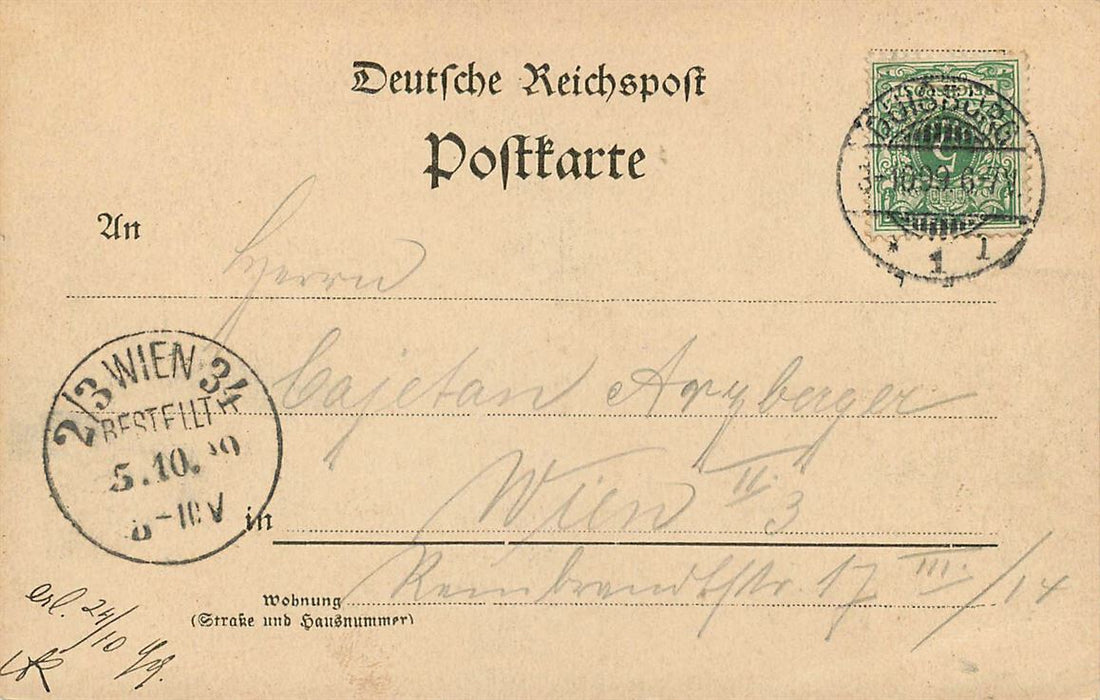 Deutsche Reichspost
Postkarte
DUISBURG
3-10 99 6-7N.
* 1 l
5
An
Herrn
Cajetan Arzberger
2/3 WIEN 34
BESTELLT
5.10.99
in
Wien II/3
Wohnung
(Straße und Hausnummer)
Rembrandtstr. 17 III. /14
erl. 24/10 99.